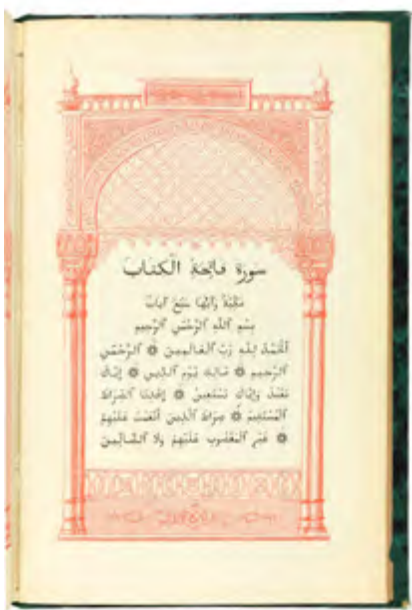 سورة فاتحة الكتاب
مكية وآيها سبع آيات
بِسْمِ ٱللّٰهِ ٱلرَّحْمٰنِ ٱلرَّحِيمِ
ٱلْحَمْدُ لِلّٰهِ رَبِّ ٱلْعَالَمِينَ ۞ ٱلرَّحْمٰنِ
ٱلرَّحِيمِ ۞ مَالِكِ يَوْمِ ٱلدِّينِ ۞ إِيَّاكَ
نَعْبُدُ وَإِيَّاكَ نَسْتَعِينُ ۞ إِهْدِنَا ٱلصِّرَاطَ
ٱلْمُسْتَقِيمَ ۞ صِرَاطَ ٱلَّذِينَ أَنْعَمْتَ عَلَيْهِمْ
۞ غَيْرِ ٱلْمَغْضُوبِ عَلَيْهِمْ وَلَا ٱلضَّالِّينَ